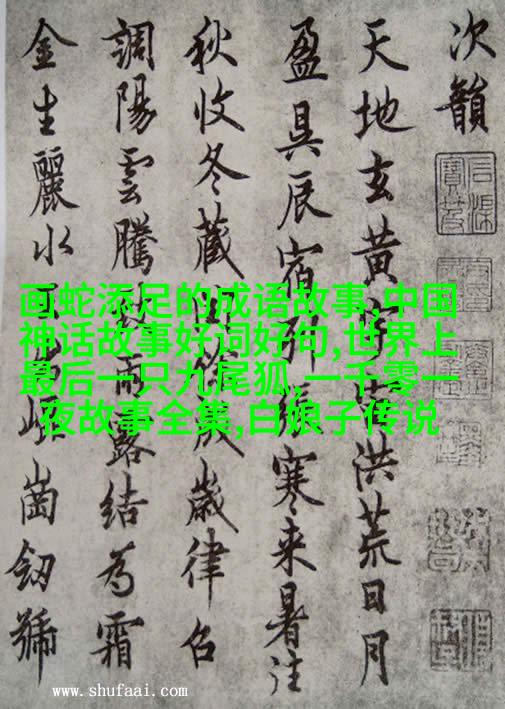 次韻
天地玄黄宇宙洪荒日月
盈昃辰宿列張寒来暑往
秋收冬藏閏餘成歲律召
調陽雲騰致雨露結為霜
金生麗水玉出崑崗劔號
画蛇添足的成语故事,中国
神话故事好词好句,世界上
最后一只九尾狐,一千零一
夜故事全集,白娘子传说
www.shufaai.com